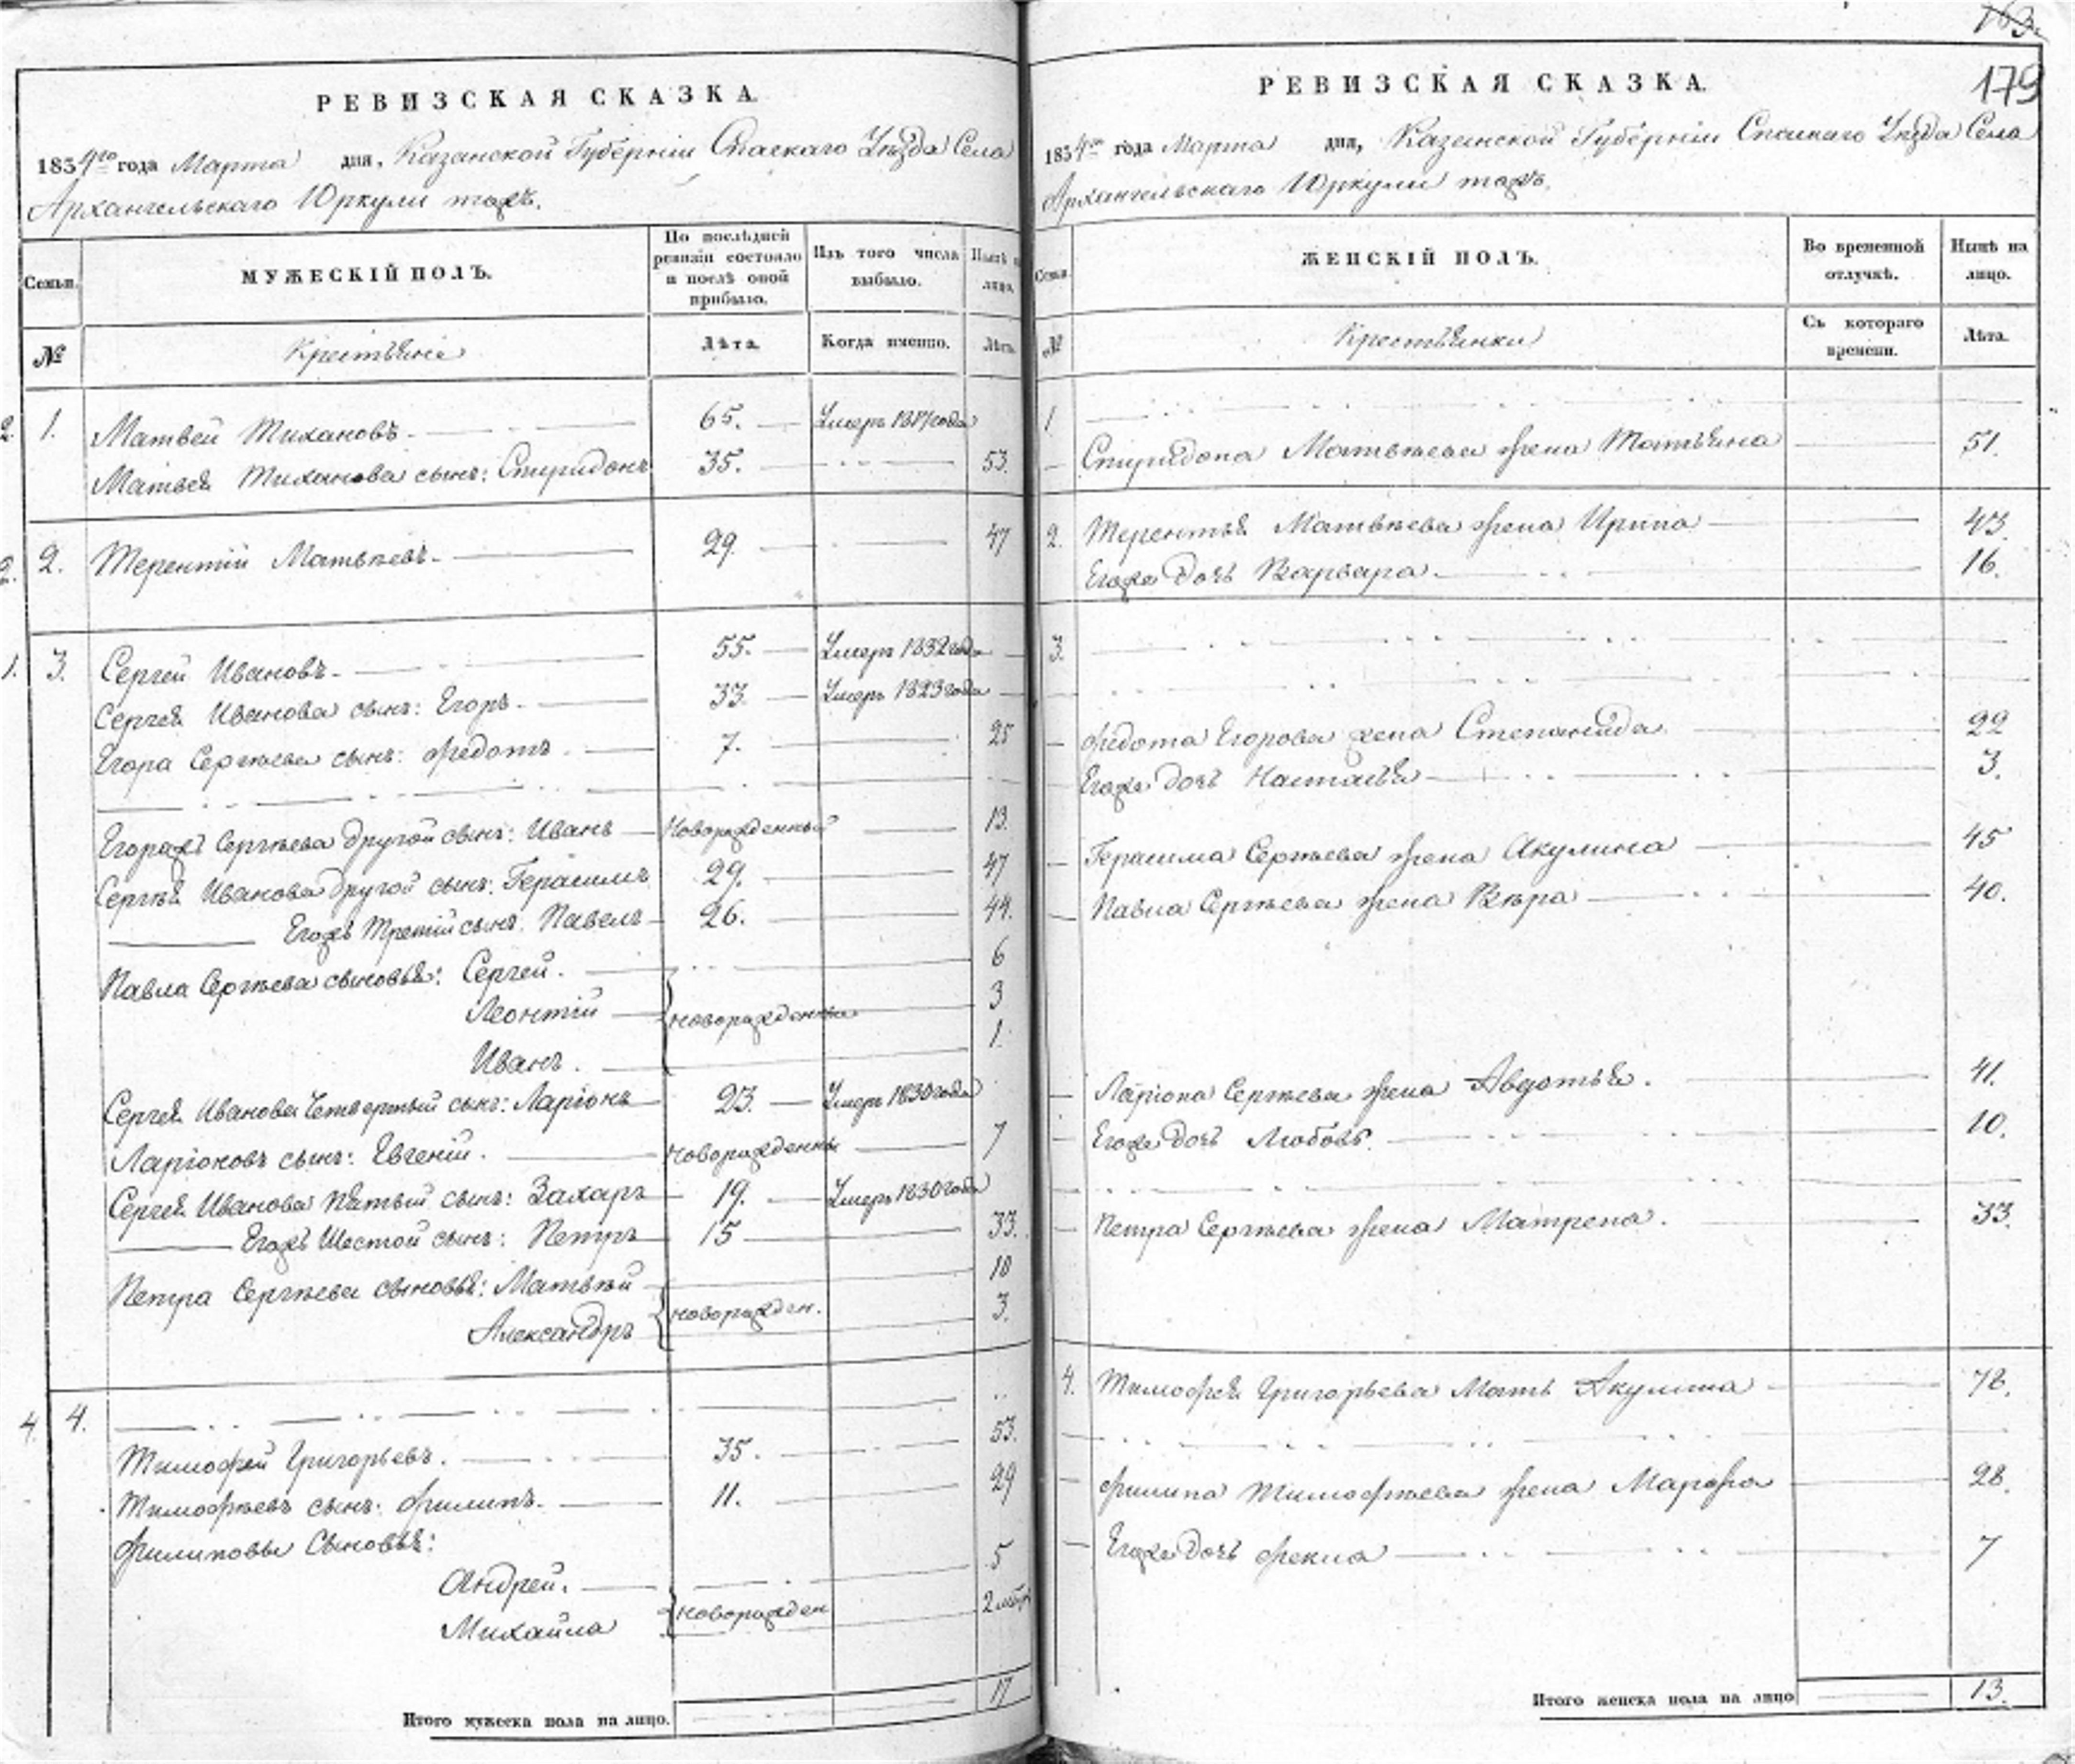 РЕВИЗСКАЯ СКАЗКА.
1834го года Марта дня, Казанской Губерніи Спаскаго Уѣзда Села
Архангельскаго Юркули тожъ.
Семьи. МУЖЕСКІЙ ПОЛЪ. По послѣдней ревизіи состояло и послѣ оной прибыло. Изъ того числа выбыло. Нынѣ на лицо.
№ Крестьяне Лѣта. Когда именно. Лѣта.
2. 1. Матвей Тихановъ. 65. Умеръ 1817 года
Матвея Тиханова сынъ: Спиридонъ 35. 53.
2. 2. Терентій Матвѣевъ. 29. 47
1. 3. Сергей Ивановъ. 55. Умеръ 1832 года
Сергея Иванова сынъ: Егоръ. 33. Умеръ 1823 года
Егора Сергѣева сынъ: Федотъ 7. 25
Егоражъ Сергѣева другой сынъ: Иванъ Новорожденный 13.
Сергѣя Иванова другой сынъ: Герасимъ 29. 47
Егожъ Третій сынъ: Павелъ 26. 44.
Павла Сергѣева сыновья: Сергей. 6
Леонтій новорожденны 3
Иванъ. 1.
Сергея Иванова Четвертый сынъ: Ларіонъ 23. Умеръ 1830 года
Ларіоновъ сынъ: Евгеній. новорожденны 7
Сергея Иванова пятый сынъ: Захаръ 19. Умеръ 1830 года
Егожъ Шестой сынъ: Петръ 15 33.
Петра Сергѣева сыновья: Матвѣй 10
Александръ новорожден. 3.
4. 4.
Тимофей Григорьевъ. 35. 53.
Тимофѣевъ сынъ: Филипъ. 11. 29
Филиповы Сыновья:
Андрей. 5
Михайла новорожден 2
Итого мужеска пола на лицо. 17
163.
179
РЕВИЗСКАЯ СКАЗКА.
1834го года Марта дня, Казанской Губерніи Спаскаго Уѣзда Села
Архангельскаго Юркули тожъ.
Семьи. ЖЕНСКІЙ ПОЛЪ. Во временной отлучкѣ. Нынѣ на лицо.
№ Крестьянки Съ котораго времени. Лѣта.
1.
Спиридона Матвѣева жена Татьяна 51.
2. Терентья Матвѣева жена Ирина 43.
Егоже дочь Варвара. 16.
3.
Федота Егорова жена Степанида. 22
Егоже дочь Настасья 3.
Герасима Сергѣева жена Акулина 45
Павла Сергѣева жена Вѣра 40.
Ларіона Сергѣева жена Авдотья. 41.
Егоже дочь Любовь. 10.
Петра Сергѣева жена Матрена. 33.
4. Тимофея Григорьева Мать Акулина 78.
Филипа Тимофѣева жена Марфа 28.
Егоже дочь Фекла 7
Итого женска пола на лицо 13.